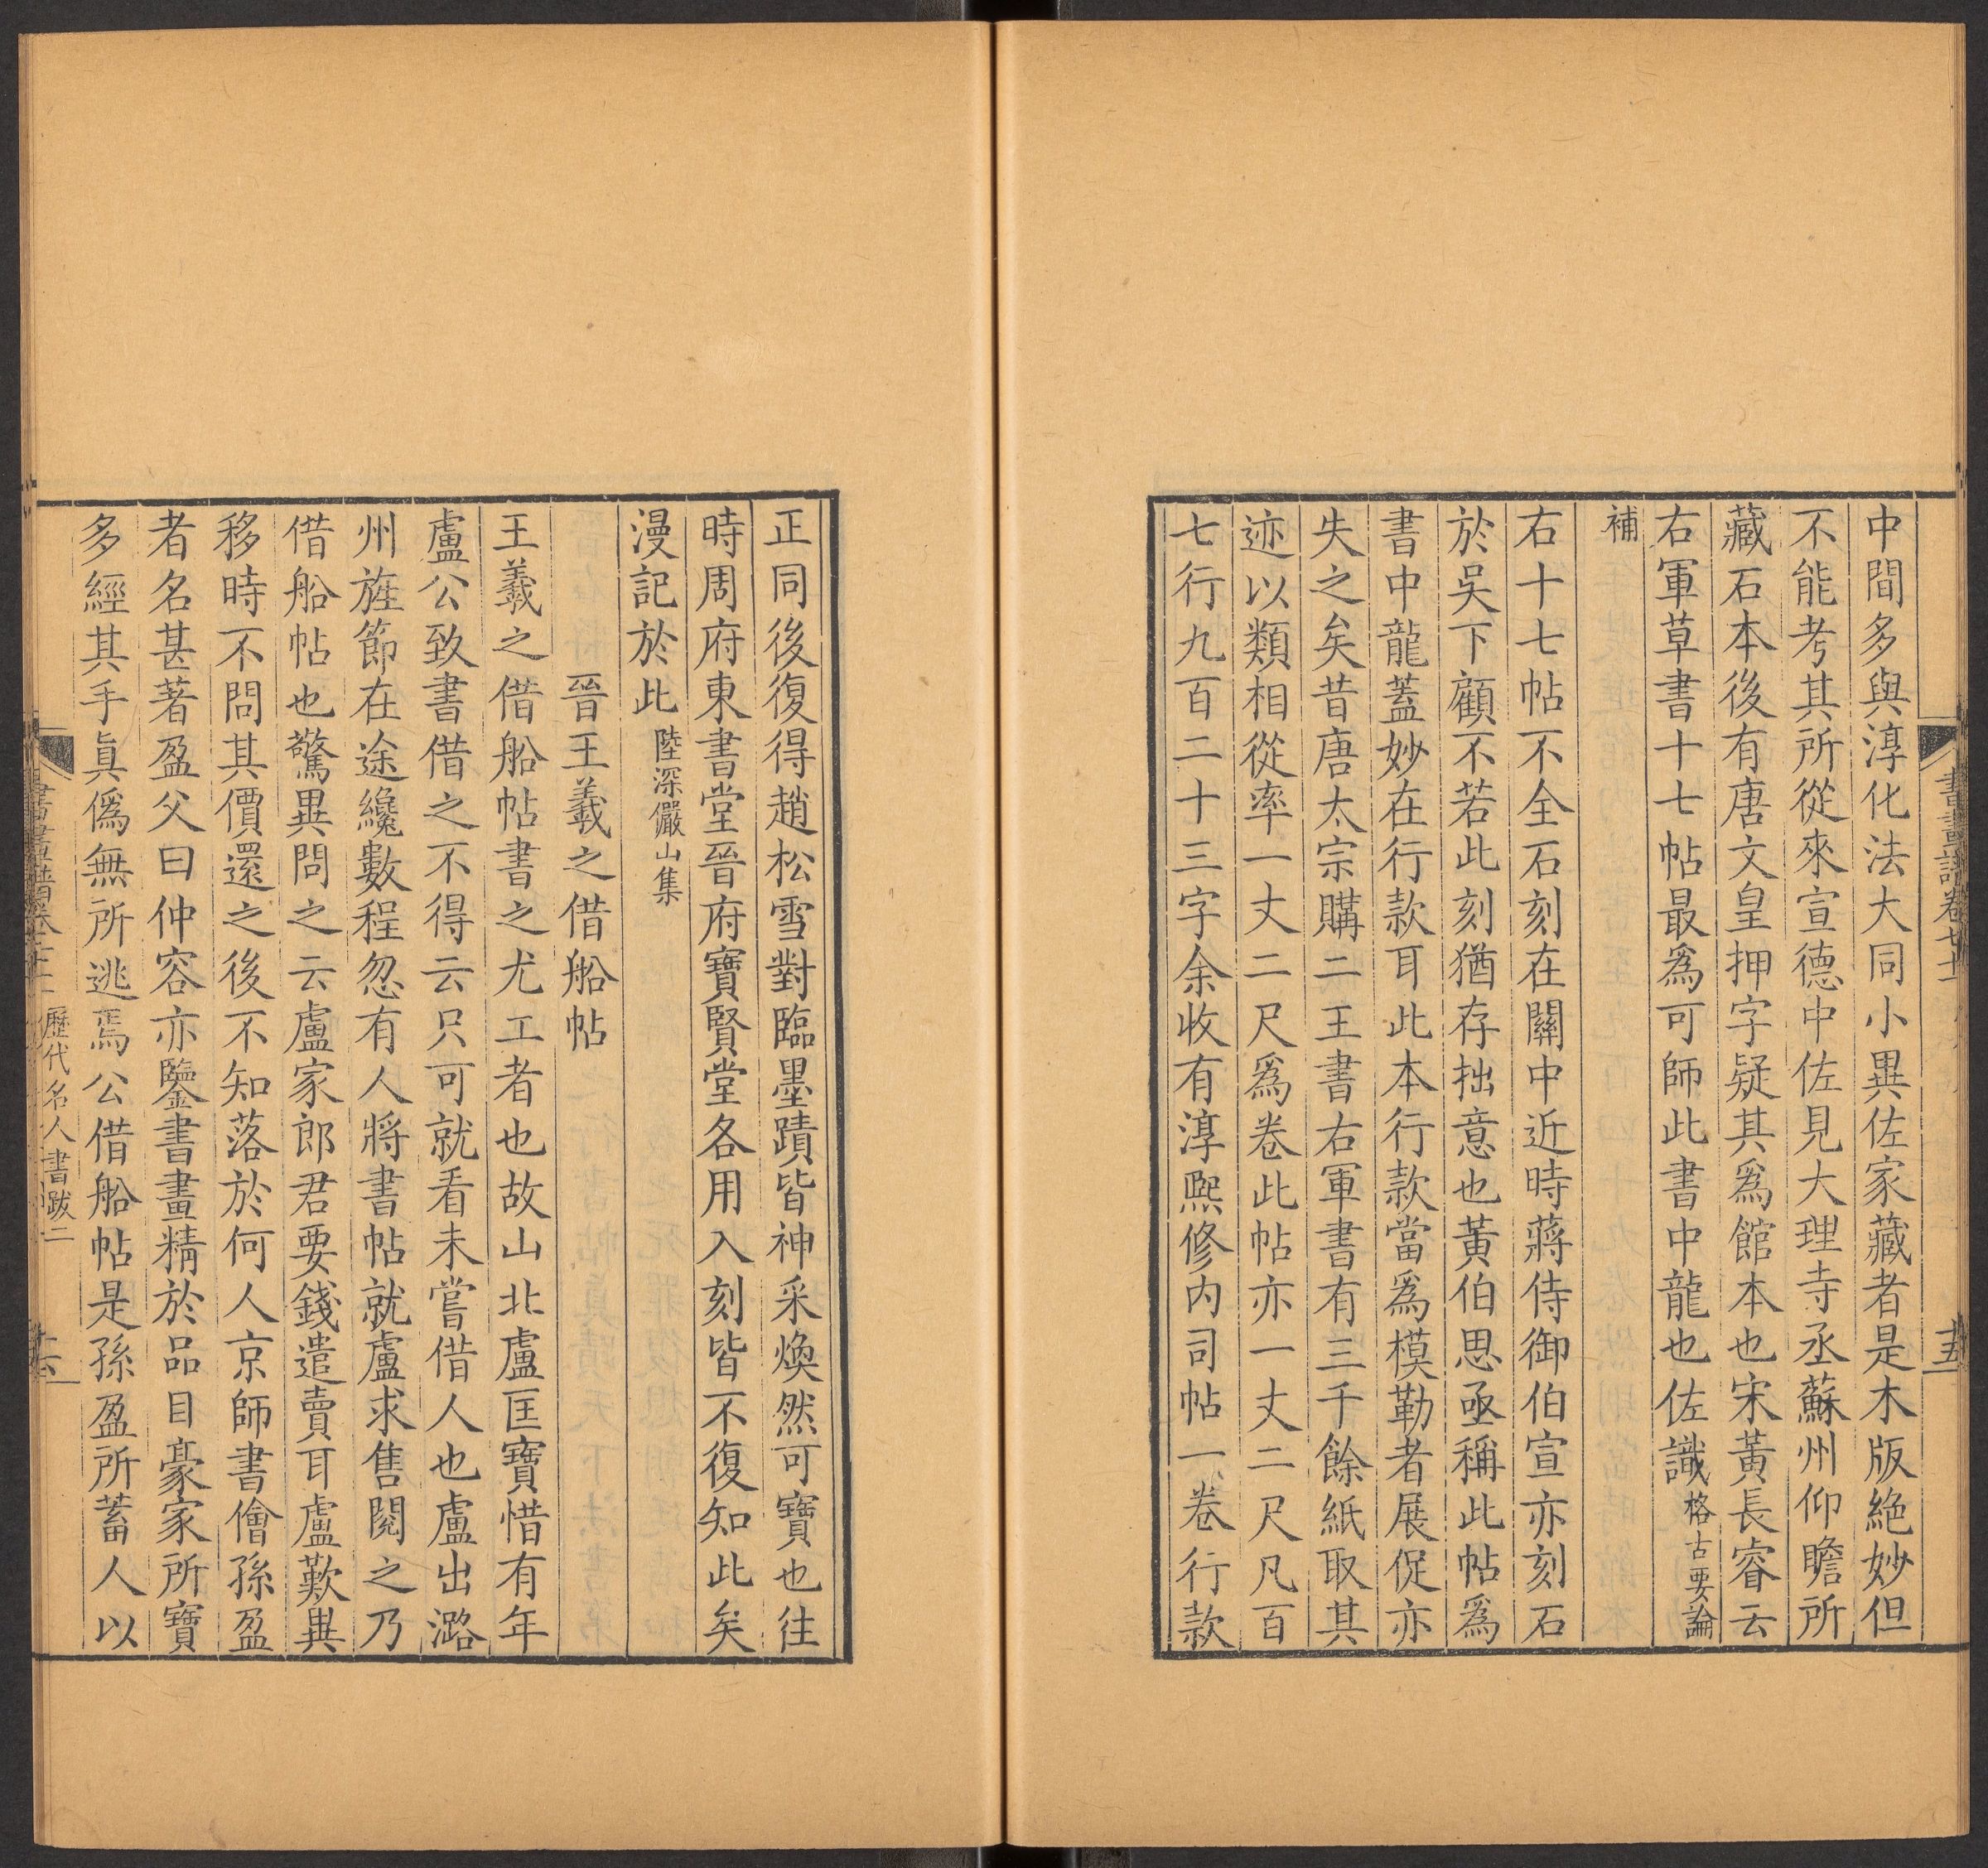 中間多與淳化法大同小異佐家藏者是木版絶妙但
不能考其所從來宣德中佐見大理寺丞蘇州仰瞻所
藏石本後有唐文皇押字疑其爲館本也宋黃長睿云
右軍草書十七帖最爲可師此書中龍也佐識格古要論
補
右十七帖不全石刻在關中近時蔣侍御伯宣亦刻石
於吳下顧不若此刻猶存拙意也黃伯思亟稱此帖爲
書中龍蓋妙在行款耳此本行款當爲模勒者展促亦
失之矣昔唐太宗購二王書右軍書有三千餘紙取其
迹以類相從率一丈二尺爲卷此帖亦一丈二尺凡百
七行九百二十三字余收有淳熙修內司帖一卷行款
正同後復得趙松雪對臨墨蹟皆神采煥然可寶也往
時周府東書堂晉府寶賢堂各用入刻皆不復知此矣
漫記於此陸深儼山集
晉王羲之借船帖
王羲之借船帖書之尤工者也故山北盧匡寶惜有年
盧公致書借之不得云只可就看未嘗借人也盧出潞
州旌節在途纔數程忽有人將書帖就盧求售閱之乃
借船帖也驚異問之云盧家郎君要錢遣賣耳盧歎異
移時不問其價還之後不知落於何人京師書儈孫盈
者名甚著盈父曰仲容亦鑒書畫精於品目豪家所寶
多經其手眞僞無所逃焉公借船帖是孫盈所蓄人以
歷代名人書跋二